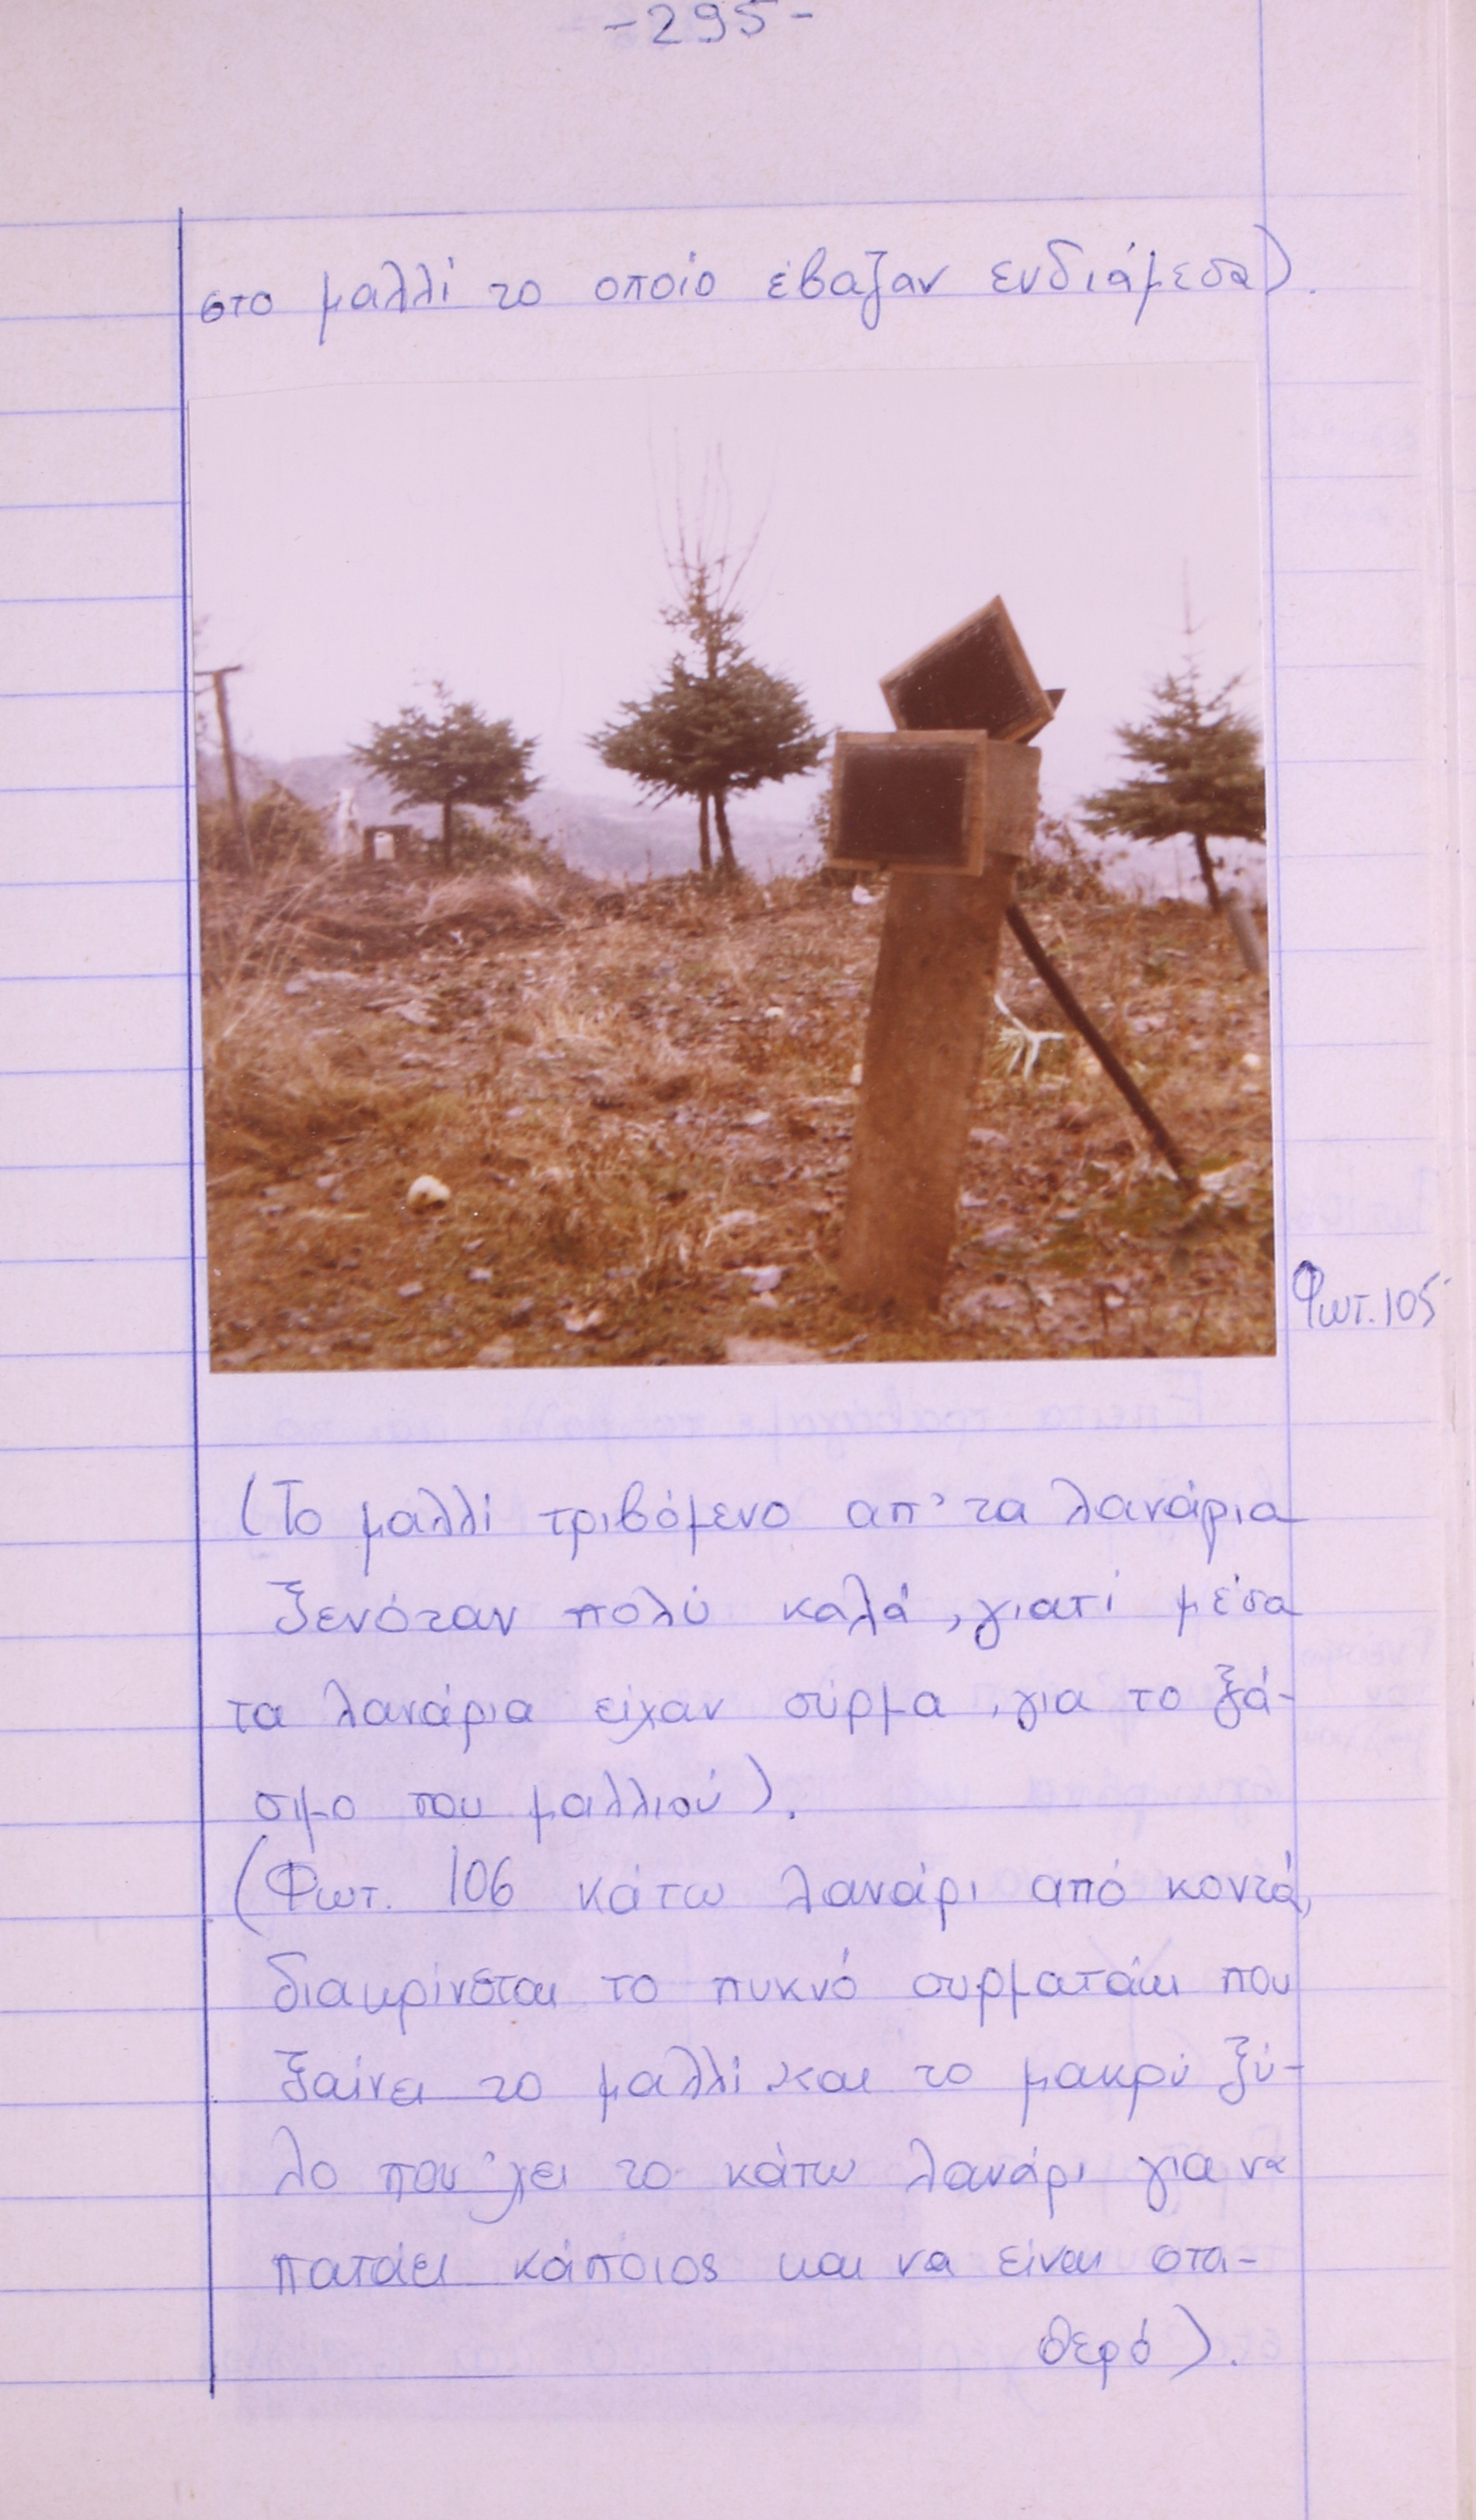 -295-
στο μαλλί το οποίο έβαζαν ενδιάμεσα).
Φωτ. 105
(Το μαλλί τριβόμενο απ' τα λανάρια
ξενόταν πολύ καλά, γιατί μέσα
τα λανάρια είχαν σύρμα, για το ξά-
σιμο του μαλλιού).
(Φωτ. 106 κάτω λανάρι από κοντά,
διακρίνεται το πυκνό συρματάκι που
ξαίνει το μαλλί και το μακρύ ξύ-
λο που 'χει το κάτω λανάρι για να
πατάει κάποιος και να είναι στα-
θερό).